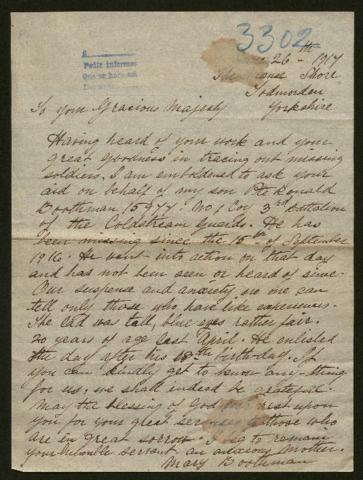 3302
26th 1917
Shore
To your Gracious Majesty Todmorden
Yorkshire
Having heard of your work and your
great goodness in tracing out missing
soldiers, I am emboldened to ask your
aid on behalf of my son Pte Ronald
Boothman 15977. No 1 Coy 3rd battalion
of the Coldstream Guards. He has
been missing since the 15th of September
1916. He went into action on that day
and has not been seen or heard of since.
Our suspense and anxiety no one can
tell only those who have like experiences.
The lad was tall, blue eyes rather fair.
20 years of age last April. He enlisted
the day after his 18th birthday. If
you can kindly get to know any-thing
for us, we shall indeed be grateful.
May the blessing of God rest upon
you for your great services to those who
are in great sorrow. I beg to remain
your humble servant an anxious mother.
Mary Boothman